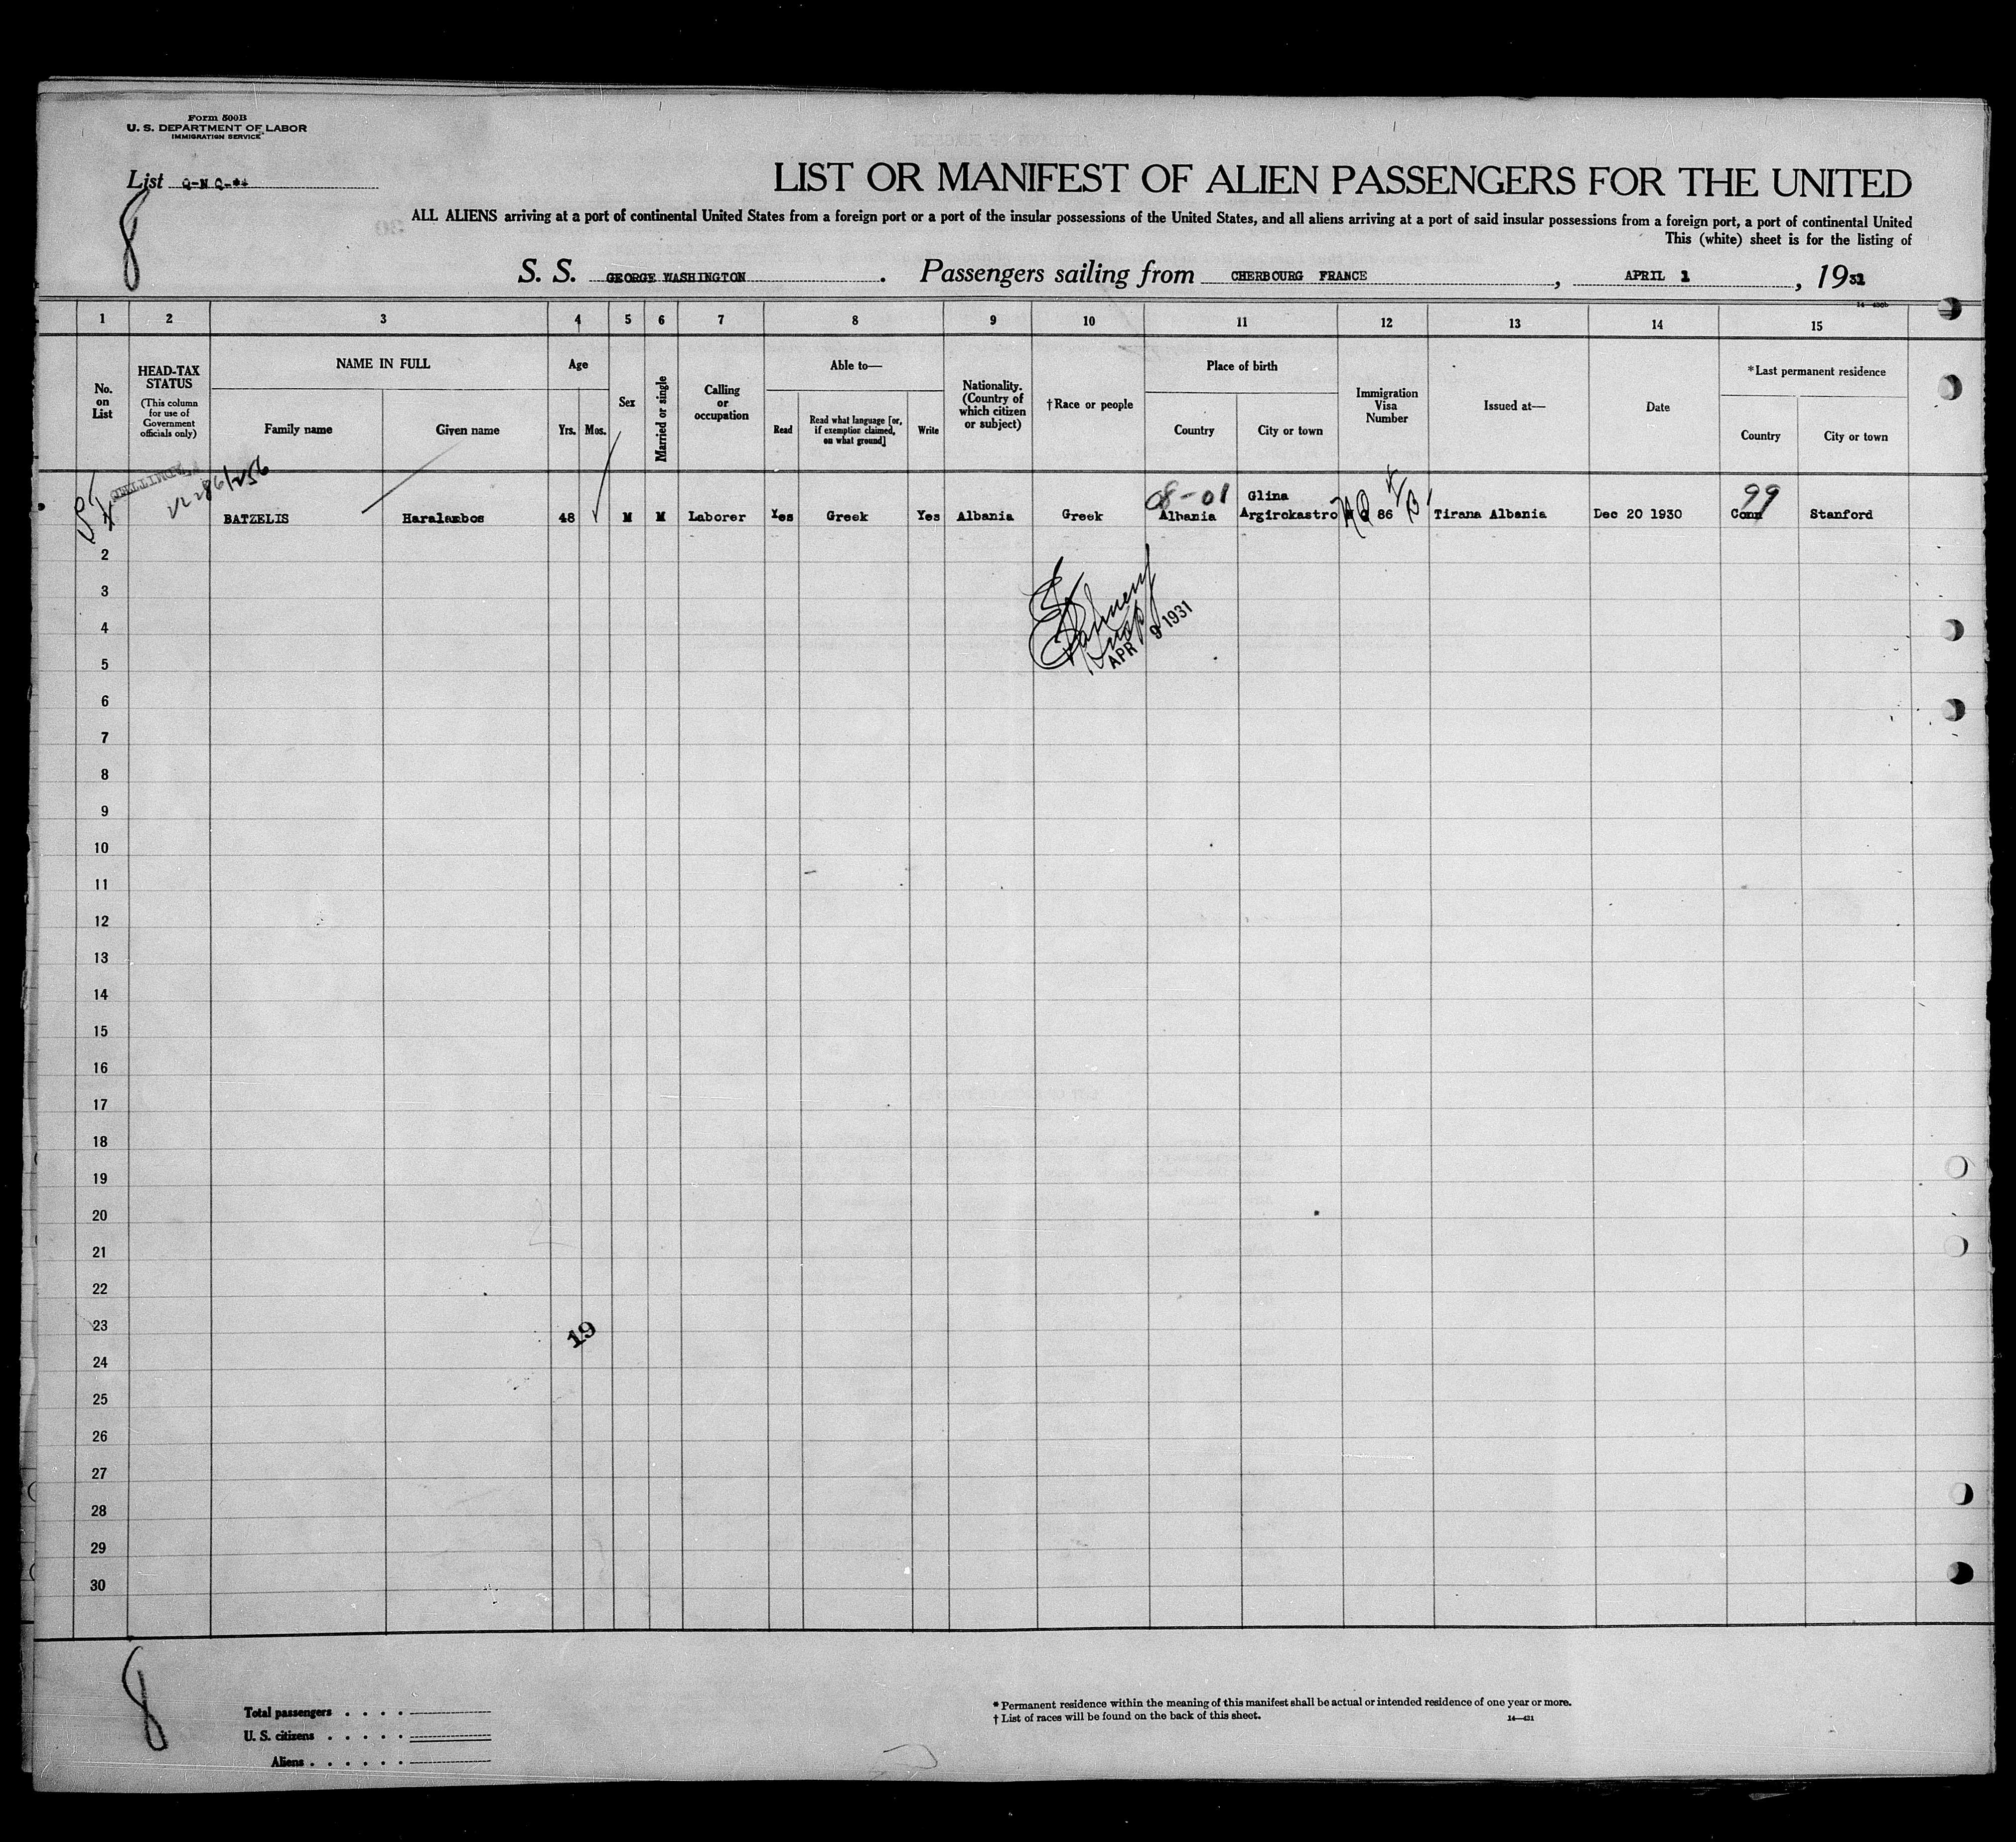 Form 500B
U. S. DEPARTMENT OF LABOR
IMMIGRATION SERVICE
List Q-N Q-**
8
LIST OR MANIFEST OF ALIEN PASSENGERS FOR THE UNITED
ALL ALIENS arriving at a port of continental United States from a foreign port or a port of the insular possessions of the United States, and all aliens arriving at a port of said insular possessions from a foreign port, a port of continental United
This (white) sheet is for the listing of
S. S. GEORGE WASHINGTON . Passengers sailing from CHERBOURG FRANCE , APRIL 1 , 1931
1 2 3 4 5 6 7 8 9 10 11 12 13 14 15
No. on List
HEAD-TAX STATUS
(This column for use of Government officials only)
NAME IN FULL
Family name
Given name
Age
Yrs.
Mos.
Sex
Married or single
Calling or occupation
Able to—
Read
Read what language [or, if exemption claimed, on what ground]
Write
Nationality. (Country of which citizen or subject)
†Race or people
Place of birth
Country
City or town
Immigration Visa Number
Issued at—
Date
*Last permanent residence
Country
City or town
08-01 Glina 99
BATZELIS Haralambos 48 M M Laborer Yes Greek Yes Albania Greek Albania Argirokastro 86 Tirana Albania Dec 20 1930 Conn Stanford
2
3
4
APR 9 1931
5
6
7
8
9
10
11
12
13
14
15
16
17
18
19
20
21
22
23
19
24
25
26
27
28
29
30
8
Total passengers
U. S. citizens
Aliens
* Permanent residence within the meaning of this manifest shall be actual or intended residence of one year or more.
† List of races will be found on the back of this sheet.
14—431